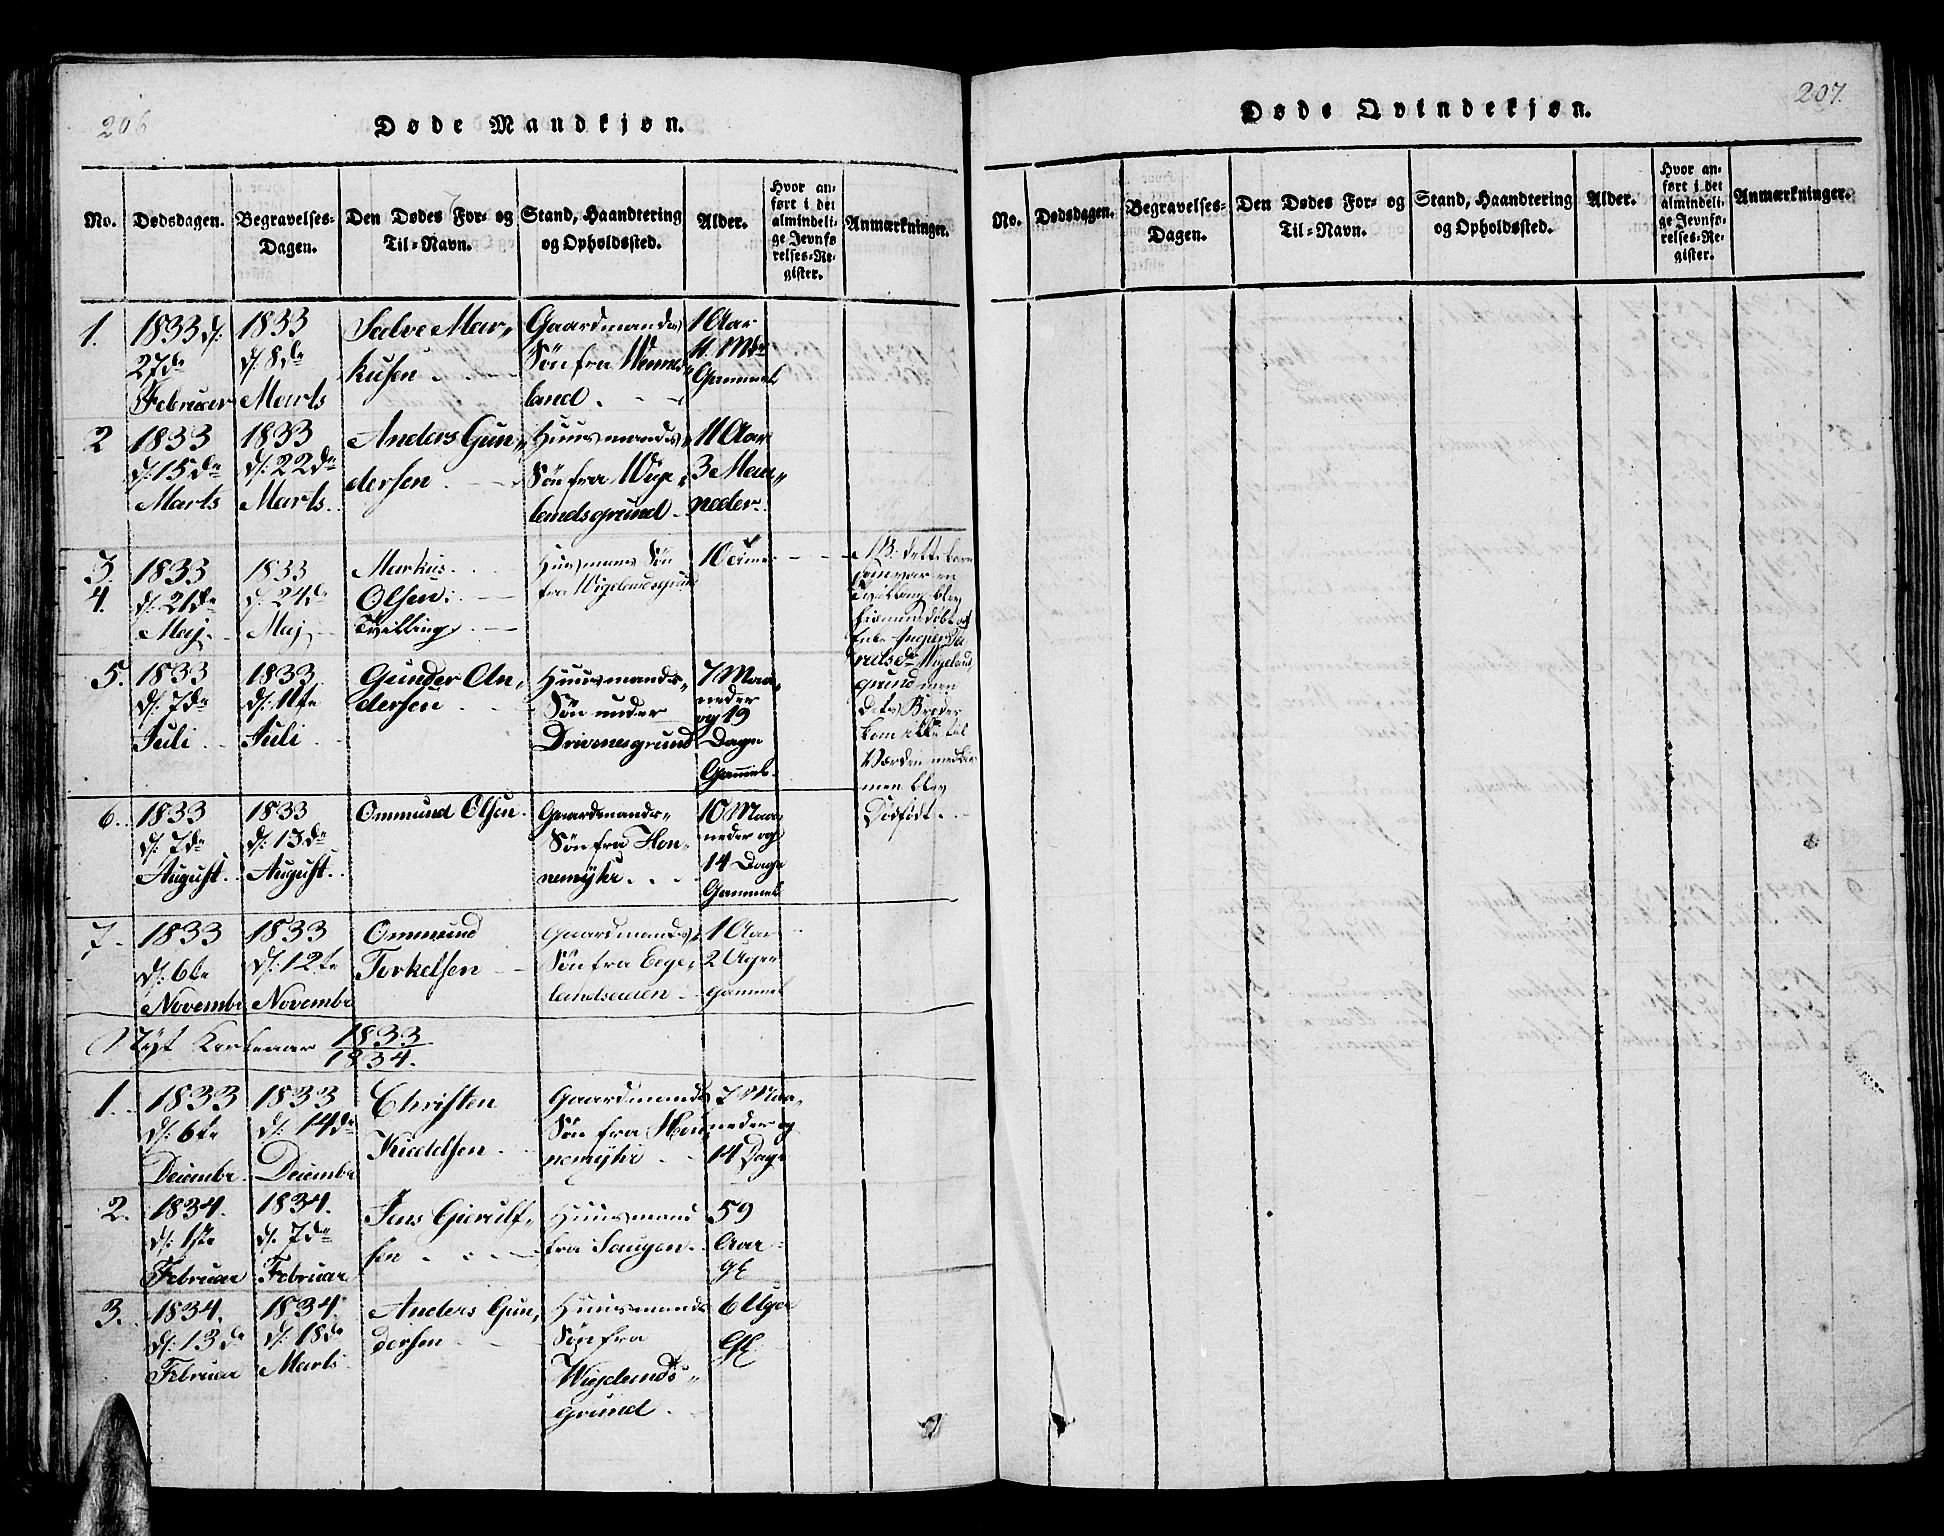 206
Døde Mandkjøn.
No.
Dødsdagen.
Begravelses-
Dagen.
Den Dødes For- og
Til-Navn.
Stand, Haandtering
og Opholdssted.
Alder.
Hvor an-
ført i det
almindeli-
ge Jevnfø
relses-Re-
gister.
Anmærkninger.
1.
1833 d:
27de
Februar
1833
d: 8de
Marts
Salve Mar-
kusen
Gaardmands
Søn fra
land.
1 Aar
Gammel
2
1833
d: 15de
Marts
1833
d: 22de
Marts.
Anders Gun-
dersen
Huusmands
Søn fra Wige-
landsgrund
11 Aar
3 Maa-
neder.
3.
4.
1833
d: 21de
Maj
1833
d: 24de
Maj
Markus
Olsen
Tvilling
Huusmans Søn
fra Wigelandsgrund
NB. dette barn
som var en
Tvilling blev
Wigeland
grund men
dets Broder
kom ikke til
Verden med
men blev
Dødfødt.
5.
1833
d: 7de
Juli
1833
d: 11te
Juli
Gunder An-
dersen
Huusmands-
Søn under
Drivenesgrund
7 Maa-
neder
og 19
Dage
Gammel.
6.
1833
d: 7de
August.
1833
d: 13de
August.
Ommund Olsen.
Gaardmands-
Søn fra Hon-
nemyhr
10 Maa-
neder og
14 Dage
Gammel
7.
1833
d: 6te
Novembr
1833
d: 12te
Novembr
Ommund
Torkelsen
Gaardmands
Søn fra Eege-
1 Aar
2 Uger
gammel
Nyt Kirkeaar 1833
1834.
1.
1833
d: 6te
Decembr.
1833
d: 14de
Decembr
Christen
Kieddelsen
Gaardmands
Søn fra Hon-
nemyhr
7 Maa-
neder og
14 Dage
2.
1834.
d: 1ste
Februar
1834.
d: 7de
Februar
Jens Gierulf-
sen
Huusmand
fra Saugen.
59
Aar
gl
3.
1834.
d: 13de
Februar
1834.
d: 18de
Marts
Anders Gun-
dersen
Huusmands
Søn fra
Wigelands-
grund
6 Uger
Gl
207.
Døde Qvindekjøn.
No.
Dødsdagen.
Begravelses-
Dagen.
Den Dødes For- og
Til-Navn.
Stand, Haandtering
og Opholdssted.
Alder.
Hvor an-
ført i det
almindeli-
ge Jevnfø-
relses-Re-
gister.
Anmærkninger.